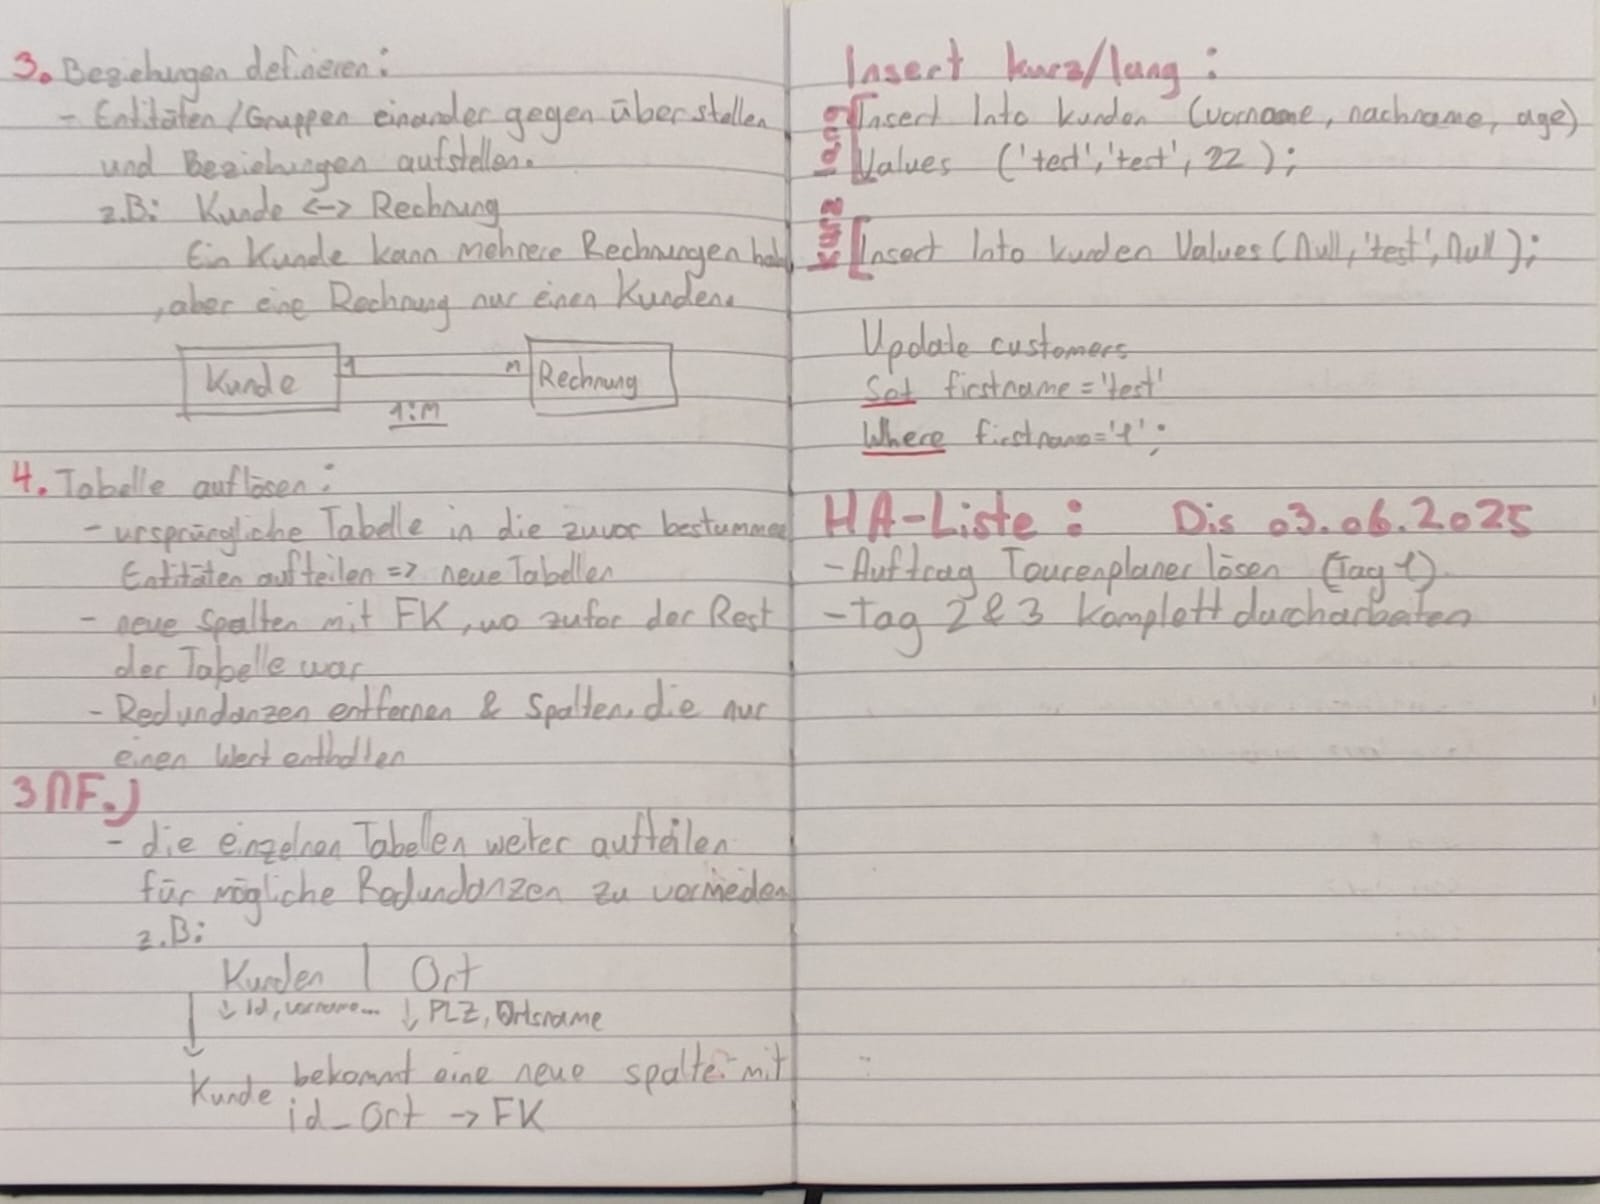 3. Beziehungen definieren:
- Entitäten/Gruppen einander gegen über stellen
und Beziehungen aufstellen.
z.B: Kunde <-> Rechnung
Ein Kunde kann mehrere Rechnungen hab
, aber eine Rechnung nur einen Kunden.
Kunde 1 m Rechnung
1:m
4. Tabelle auflösen:
- ursprüngliche Tabelle in die zuvor bestummen
Entitäten aufteilen => neue Tabellen
- neue Spalten mit FK, wo zufor der Rest
der Tabelle war
- Redundanzen entfernen & Spalten, die nur
einen Wert enthalten
3NF.)
- die einzelnen Tabellen weiter aufteilen
für mögliche Redundanzen zu vermieden
z.B:
Kunden | Ort
↓ Id, vorname... ↓ PLZ, Ortsname
Kunde bekommt eine neue spalte mit
id_Ort -> FK
Insert kurz/lang:
lang
Insert Into kunden (vorname, nachname, age)
Values ('test','test', 22);
kurz
Insert Into kunden Values (Null,'test', Null);
Update customers
Set firstname = 'test'
Where firstname='t';
HA-Liste: Dis 03.06.2025
- Auftrag Tourenplaner lösen (Tag 1)
- Tag 2 & 3 komplett durcharbeten